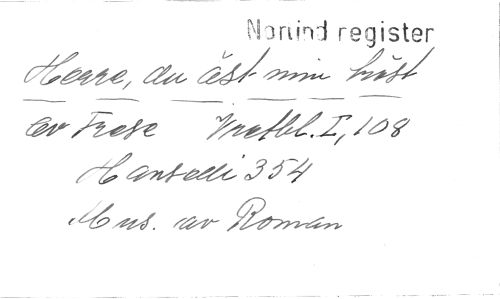 Nonind register
Herre, du äst min tröst
av Frese Vretbl. I, 108
Hanselli 354
Mus. av Roman